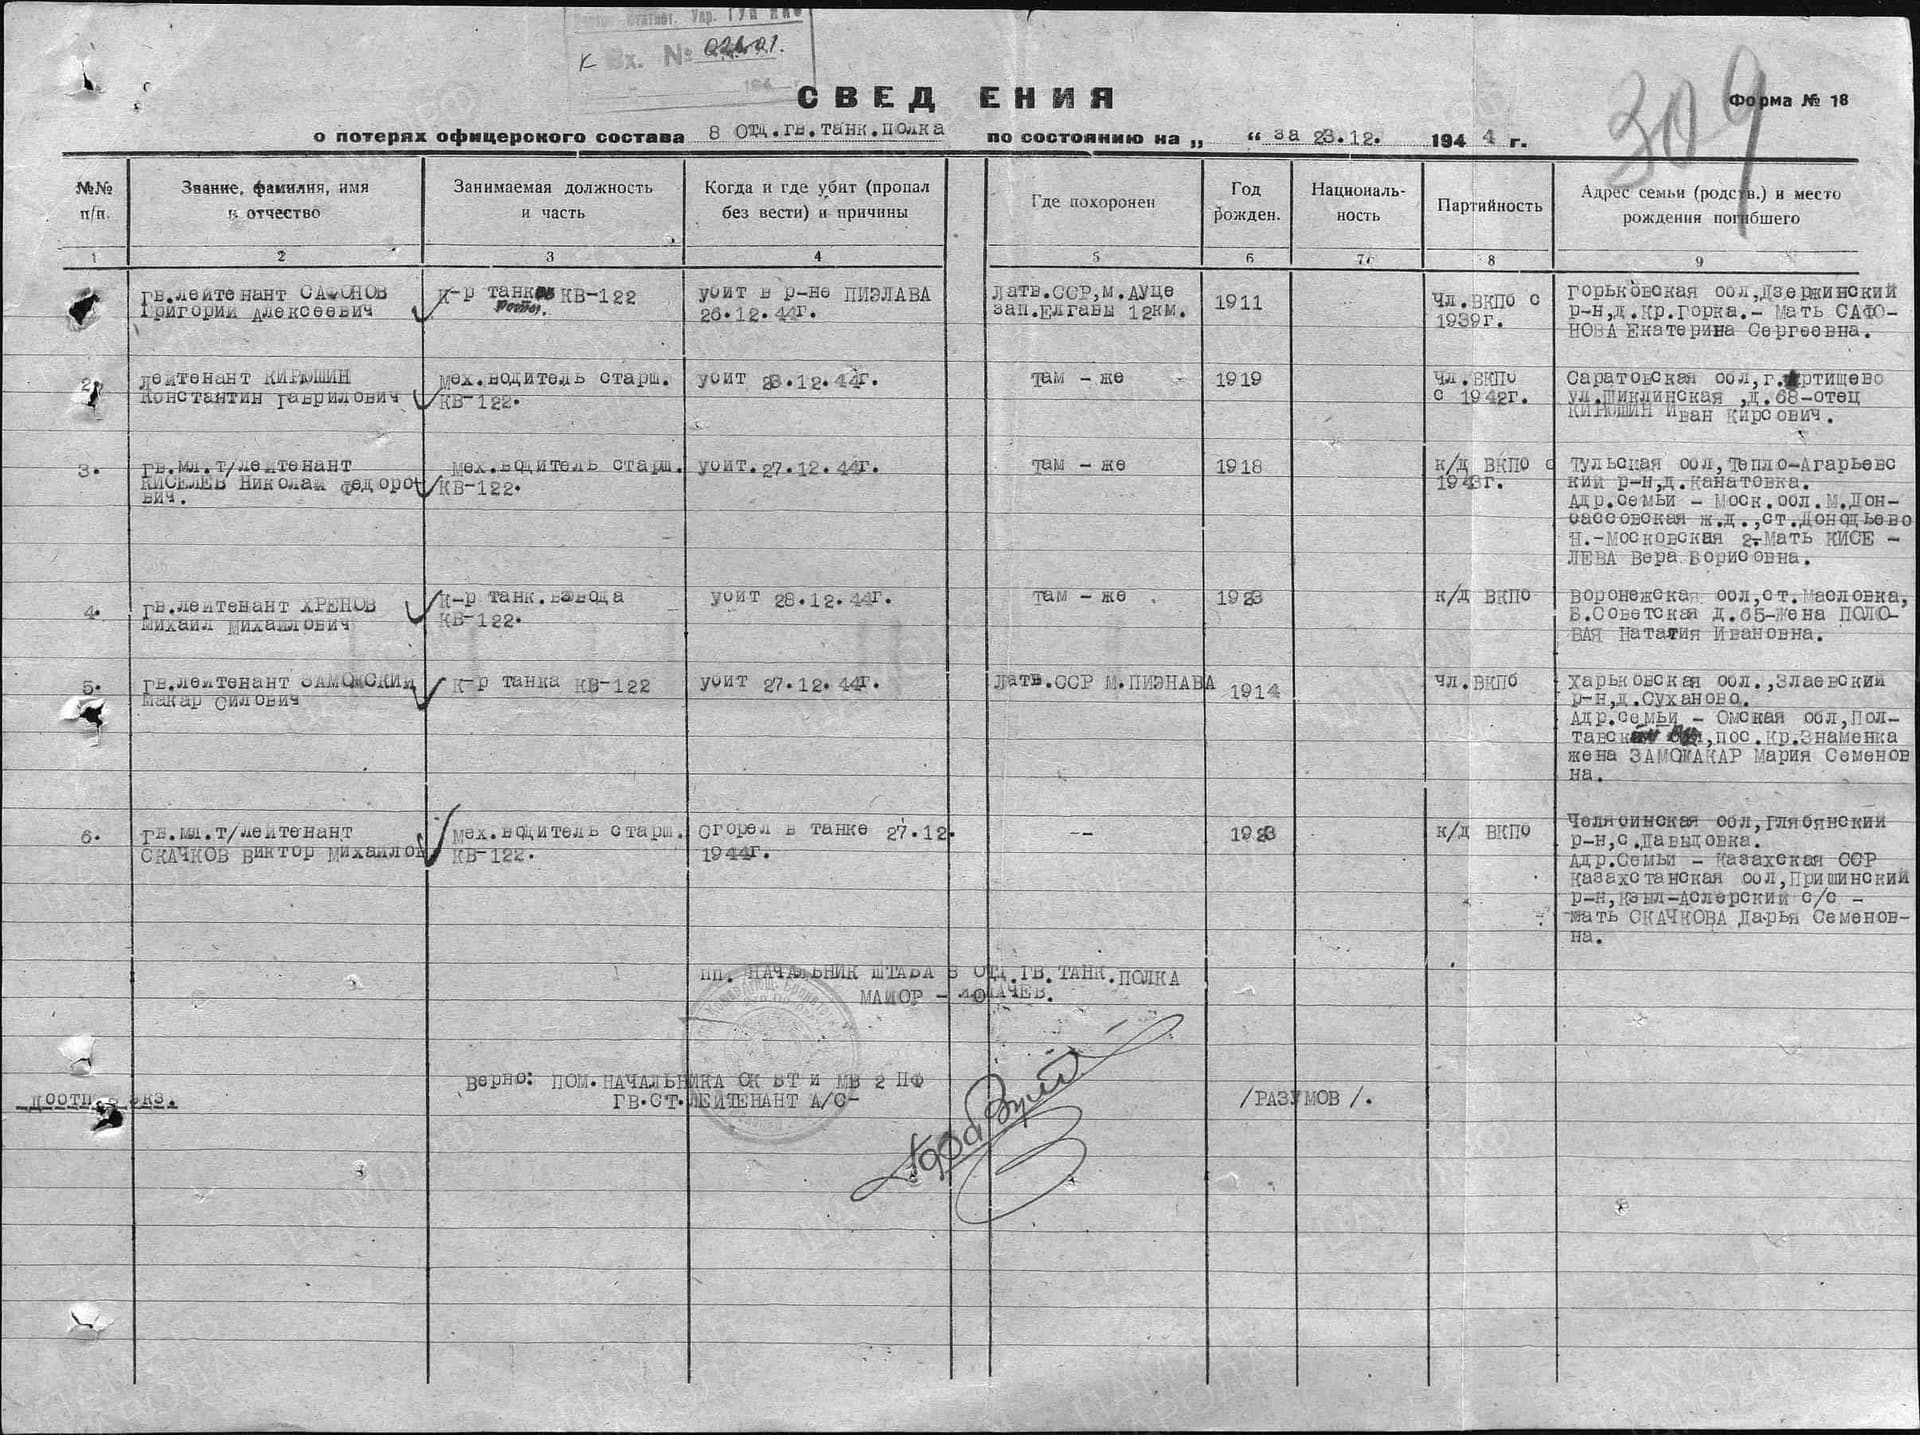 Упр. ГУП НКО
К Вх. №
194
309
СВЕДЕНИЯ
Форма № 18
о потерях офицерского состава 8 ОТД.ГВ.ТАНК.ПОЛКА по состоянию на „ “ за 23.12. 1944 г.
№№ п/п.
Звание, фамилия, имя и отчество
Занимаемая должность и часть
Когда и где убит (пропал без вести) и причины
Где похоронен
Год рожден.
Националь-
ность
Партийность
Адрес семьи (родств.) и место рождения погибшего
1 2 3 4 5 6 7 8 9
Гв.лейтенант САФОНОВ
Григорий Алексеевич
К-р танков КВ-122
роты.
убит в р-не ПИЭЛАВА
26.12.44г.
Латв.ССР,м.Ауце
зап.Елгавы 12км.
1911
Чл.ВКПб с
1939г.
Горьковская обл,Дзержинский
р-н,д.Кр.Горка.- Мать САФО-
НОВА Екатерина Сергеевна.
2.
Лейтенант КИРЮШИН
Константин Гаврилович
Мех.водитель старш.
КВ-122.
убит 23.12.44г.
там - же
1919
Чл.ВКПб
с 1942г.
Саратовская обл,г.Ртищево
ул.Шиклинская ,д.68-отец
КИРЮШИН Иван Кирсович.
3.
Гв.мл.т/лейтенант
КИСЕЛЕВ Николай Федоро-
вич.
Мех.водитель старш.
КВ-122.
убит.27.12.44г.
там - же
1918
к/д ВКПб с
1943г.
Тульская обл,Тепло-Агарьевс
кий р-н,д.Канатовка.
Адр.семьи - Моск.обл.М.Дон-
бассовская ж.д.,ст.Донодьево
Н.-Московская 2-Мать КИСЕ -
ЛЕВА Вера Борисовна.
4.
Гв.лейтенант ХРЕНОВ
Михаил Михайлович
К-р танк.взвода
КВ-122.
убит 28.12.44г.
там - же
1923
к/д ВКПб
Воронежская обл,ст.Масловка,
Б.Советская д.65-Жена ПОЛО-
ВАЯ Наталия Ивановна.
5.
Гв.лейтенант ЗАМОЖСКИЙ
Макар Силович
К-р танка КВ-122
убит 27.12.44г.
Латв.ССР М.ПИЭНАВА
1914
Чл.ВКПб
Харьковская обл.,Злаевский
р-н,д.Суханово.
Адр.семьи - Омская обл,Пол-
тавск ,пос.Кр.Знаменка
жена ЗАМОЖАКАР Мария Семенов
на.
6.
Гв.мл.т/лейтенант
СКАЧКОВ Виктор Михайлов
Мех.водитель старш.
КВ-122.
Сгорел в танке 27.12.
1944г.
--
1923
к/д ВКПб
Челябинская обл,Глябянский
р-н,с.Давыдовка.
Адр.Семьи - Казахская ССР
Казахстанская обл,Пришинский
р-н,Кзыл-Аслерский с/с -
мать СКАЧКОВА Дарья Семенов-
на.
пп. НАЧАЛЬНИК ШТАБА 8 ОТД.ГВ.ТАНК.ПОЛКА
МАЙОР -
Верно: ПОМ.НАЧАЛЬНИКА ОК БТ и МВ 2 ПФ
ГВ.СТ.ЛЕЙТЕНАНТ А/С-
/РАЗУМОВ /.